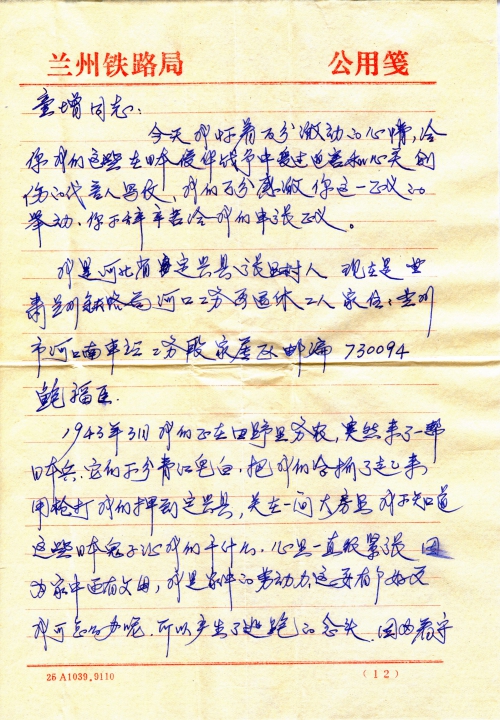 兰州铁路局 公用笺
童增同志:
今天我怀着万分激动的心情,给
你我们这些在日本侵华战争中受过迫害和心灵创
伤的代言人写信,我们万分感激你这一正义的
举动。你不辞辛苦给我们申张正义。
我是河北省定兴县张 村人 现在是甘
肃兰州铁路局河口工务段退休工人 家住:兰州
市河口南车站工务段家属区 邮编 730094
鲍福臣.
1943年3月我们正在田野里务农,突然来了一帮
日本兵,它们不分青红皂白,把我们给抓了起来
用枪打我们押到定兴县,关在一间大房里 我不知道
这些日本鬼子让我们干什么.心里一直很紧张 因
为家中还有父母,我是家中的劳动力,这要有个好歹
我可怎么办呢.所以产生了逃跑的念头.因为看守
26 A1039.9110 (12)